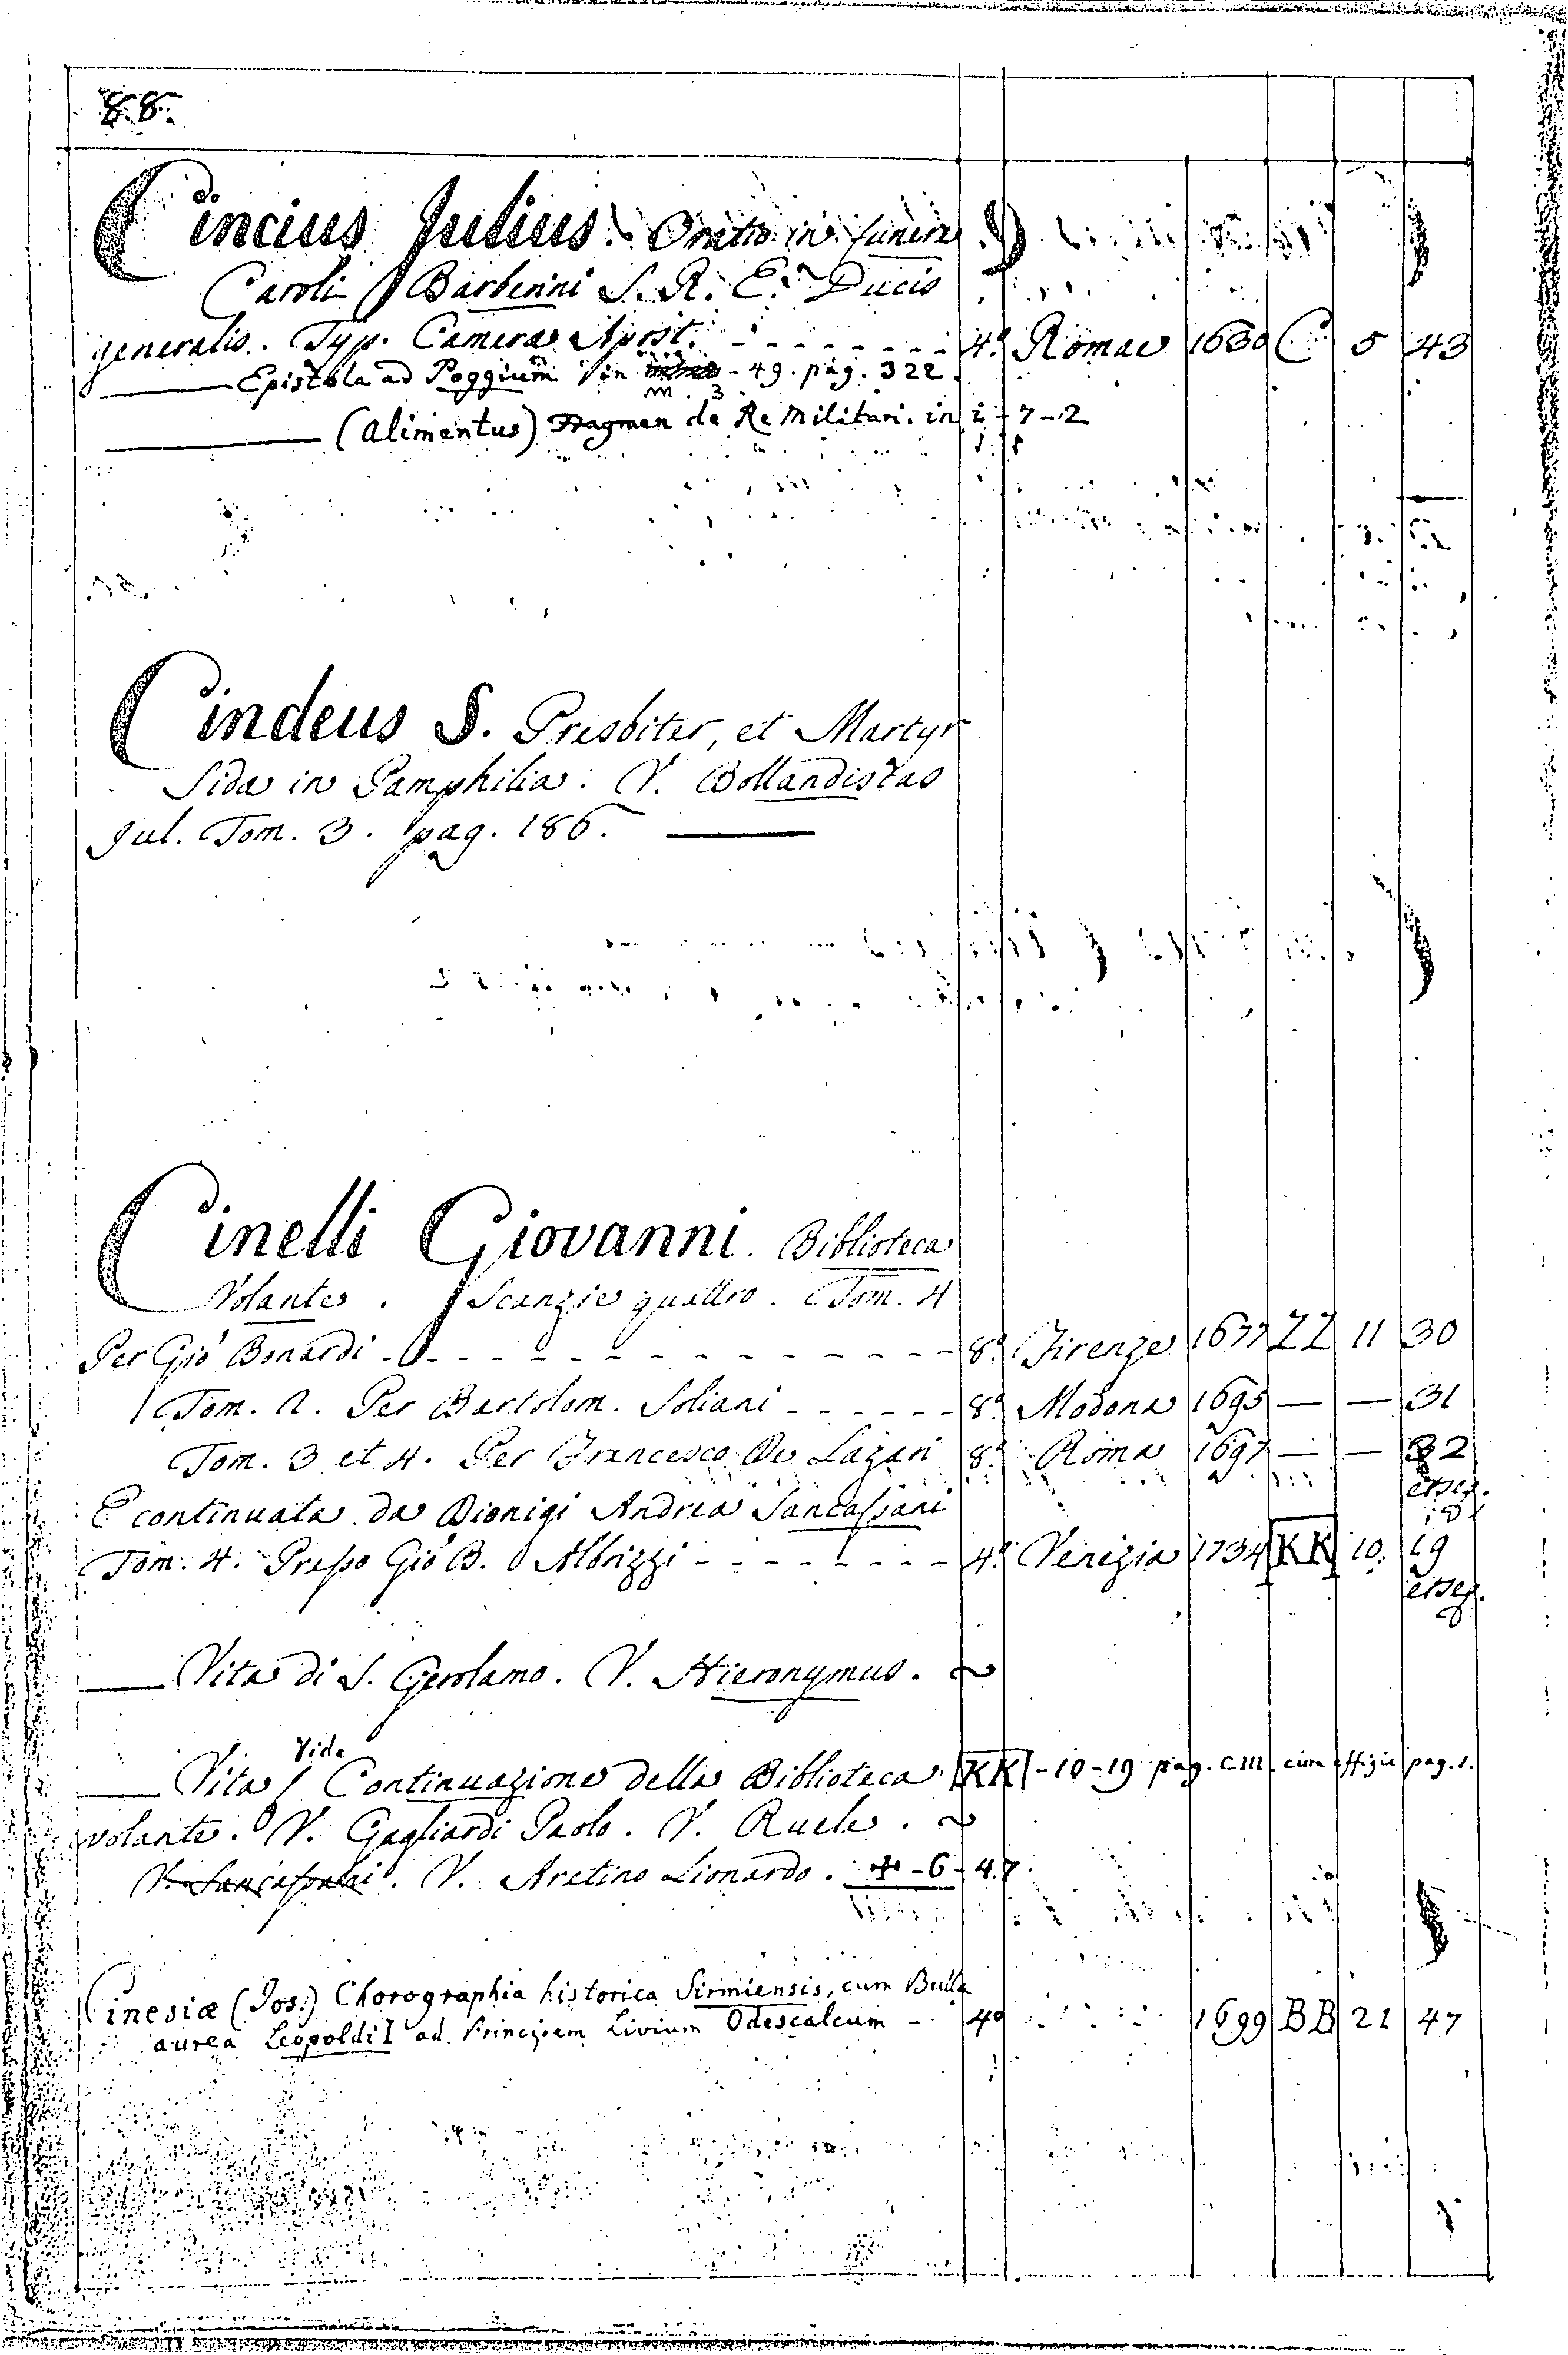 88.
Cincius Julius. Oratio in funere
Caroli Barberini S. R. E. Ducis
generalis. Typ. Cameræ Apost. - - - - - - - 4.º Romae 1630 C 5 43
—— Epistola ad Poggium in m. 3 - 49. pag. 322
—— (Alimentus) Fragmen de Re Militari. in i - 7 - 2
Cindeus S. Presbiter, et Martyr
Sidæ in Pamphilia. V. Bollandistas
Jul. Tom. 3. pag. 186. ——
Cinelli Giovanni. Biblioteca
Volante. Scanzie quattro. Tom. 4
Per Gio Bonardi - - - - - - - - - - - - - 8.º Firenze 1677 ZZ 11 30
Tom. 2. Per Bartolom. Soliani - - - - - - 8.º Modona 1695 — — 31
Tom. 3 et 4. Per Francesco De Lazari 8.º Roma 1697 — — 32
et seq.
E continuata da Dionigi Andrea Sancassani
Tom. 4. Presso Gio B. Albrizzi - - - - - - - 4.º Venezia 1734 KK 10. 19
et seq.
—— Vita di S. Gerolamo. V. Hieronymus.
Vide
—— Vita / Continuazione della Biblioteca KK - 10 - 19 pag. CIII. cum effigie pag. 1.
volante. V. Gagliardi Paolo. V. Ruele.
V. Sancassani. V. Aretino Lionardo. + - 6 - 47
Cinesiæ (Jos:) Chorographia historica Sirmiensis, cum Bulla
aurea Leopoldi I ad Principem Livium Odescalcum - 4º 1699 BB 21 47